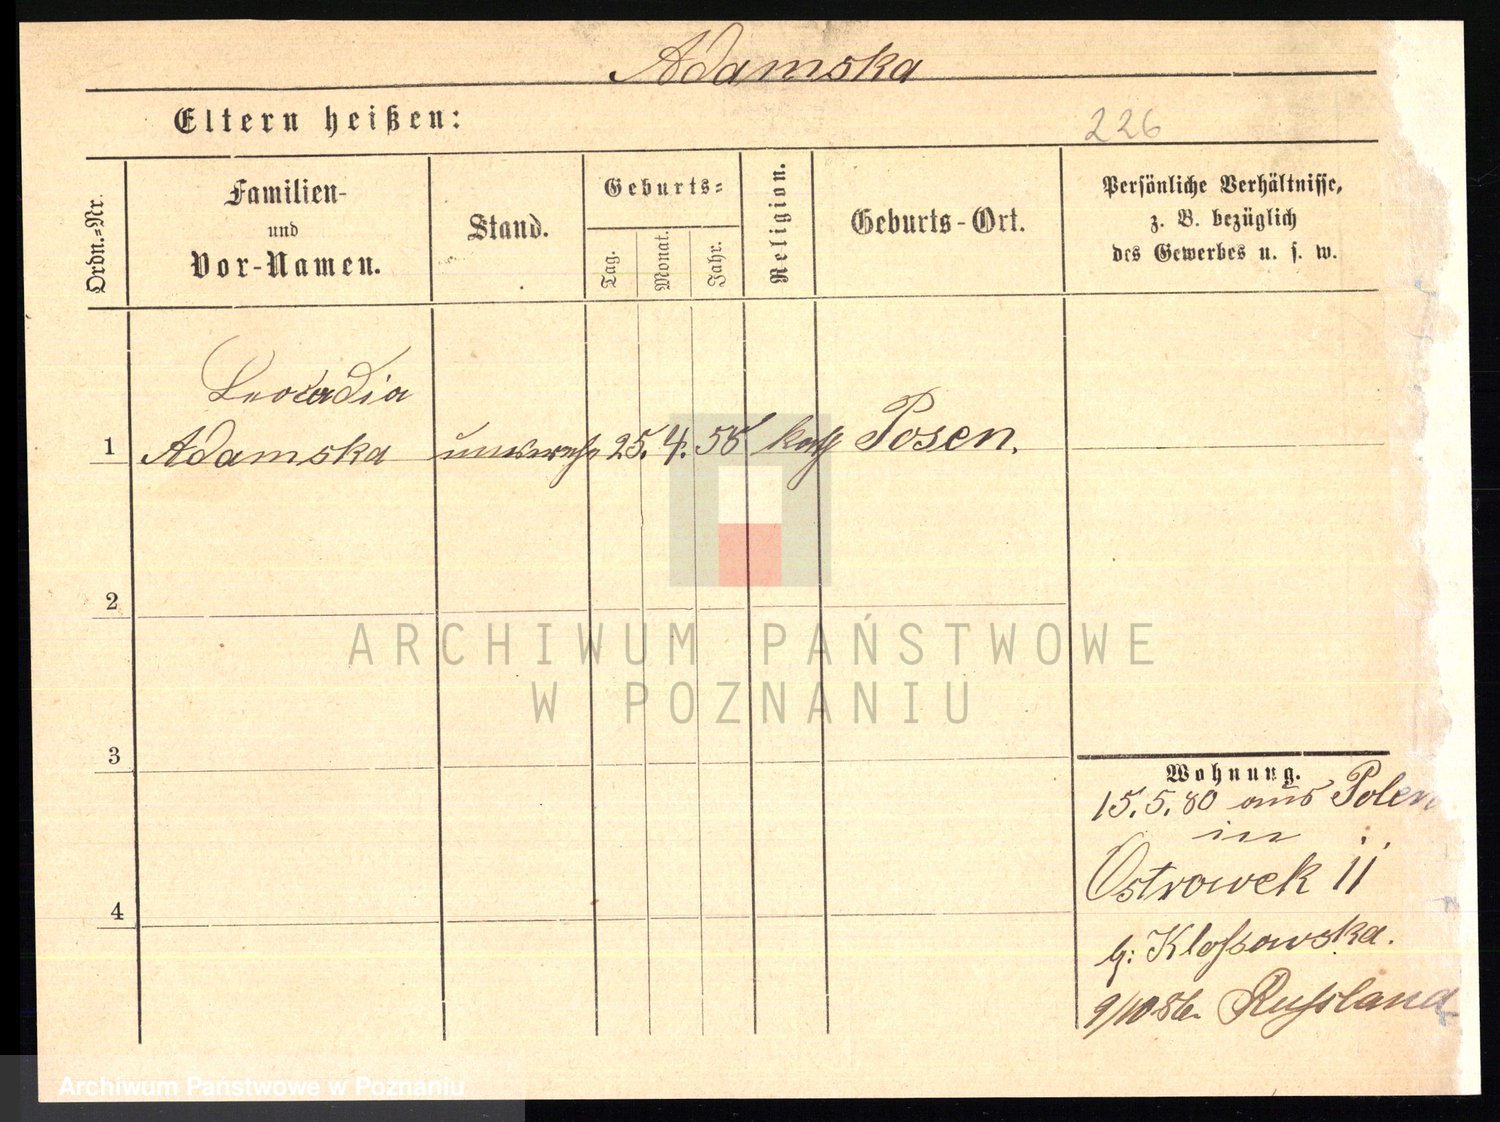 Adamska
Eltern heißen:
226
Ordn.-Nr.
Familien-
und
Vor-Namen.
Stand.
Geburts-
Tag.
Monat.
Jahr.
Religion.
Geburts-Ort.
Persönliche Verhältnisse,
z. B. bezüglich
des Gewerbes u. s. w.
Leocadia
1 Adamska unverehl. 25. 4. 55 kath Posen.
2
3
4
Wohnung.
15.5.80 aus Polen
in
Ostrowek 11
b: Kloßowska.
9/10 86. Rußland
ARCHIWUM PAŃSTWOWE
W POZNANIU
Archiwum Państwowe w Poznaniu